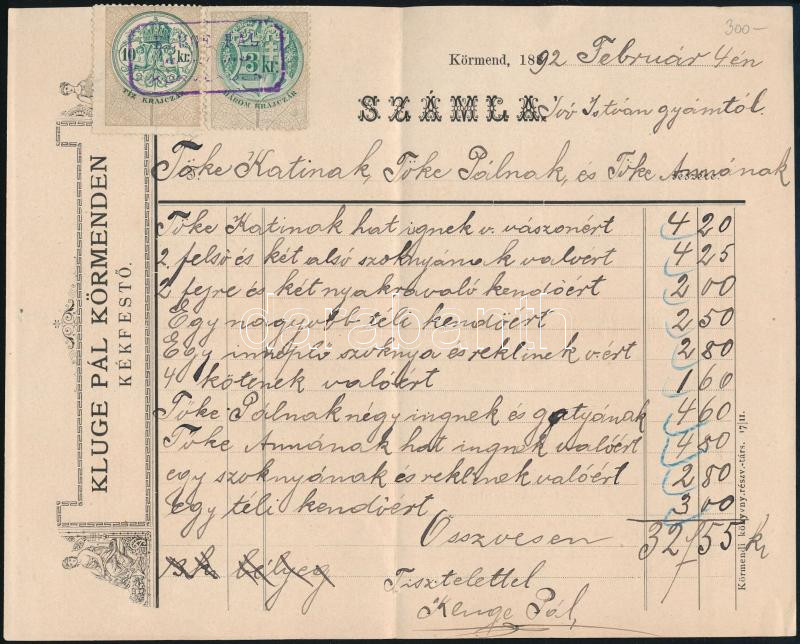 300-
Körmend, 1892 Február 4én
SZÁMLA Ivó István gyámtól.
Tőke Katinak, Tőke Pálnak, és Tőke Annának
Tőke Katinak hat ignek v. vászonért 4 20
2 felső és két alsó szoknyának valvért 4 25
2 fejre és két nyakravaló kendőért 2 00
Egy nagyobb téli kendőért 2 50
Egy innepló szoknya és reklinek v. ért 2 80
4 kötének valóért 1 60
Tőke Pálnak négy ingnek és gatyának 4 60
Tőke Annának hat ingnek valóért 4 80
egy szoknyának és reklinek valóért 2 80
Egy téli kendőért 3 00
Összvesen 32 55 kr
13 k bélyeg
Tisztelettel
Kluge Pál
KLUGE PÁL KÖRMENDEN
KÉKFESTŐ.
10 kr.
TIZ KRAJCZÁR
3 kr.
HÁROM KRAJCZÁR
Körmendi könyvny. részv.-társ. 17|11.
darabanth